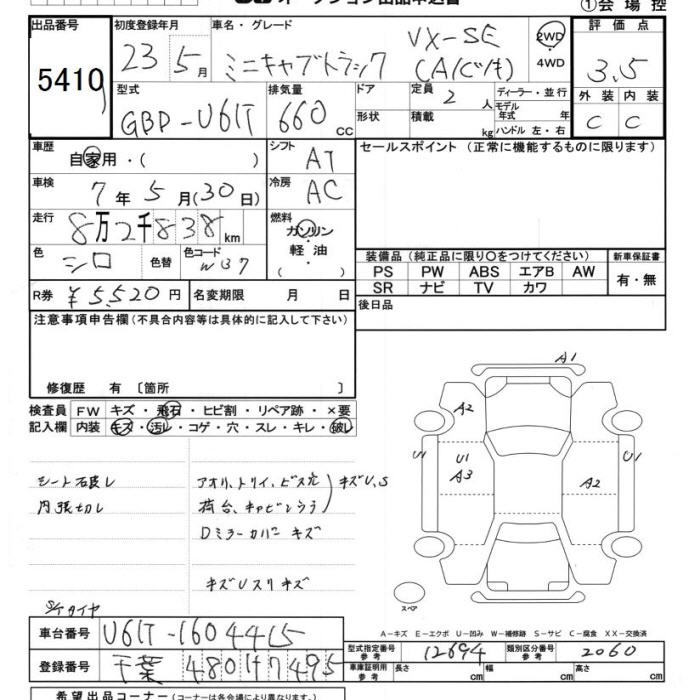 ①会場控
出品番号 初度登録年月 車名・グレード 評価点
5410 23 5月 ミニキャブトラック VX-SE 2WD・4WD 3.5
型式 排気量 ドア 定員 2人 ディーラー・並行 外装 内装
GBD-U61T 660cc 形状 積載 kg モデル年式 年式 ハンドル 左・右 C C
車歴 シフト セールスポイント (正常に機能するものに限ります)
自家用・( ) AT
車検 7年5月(30日) 冷房 AC
走行 8万2千838km 燃料 ガソリン・軽油・( )
色 シロ 色替 色コード W37
装備品 (純正品に限り○をつけてください) 新車保証書
PS PW ABS エアB AW 有・無
SR ナビ TV カワ
R券 ¥5,520円 名変期限 月 日 後日品
注意事項申告欄 (不具合内容等は具体的に記入して下さい)
修復歴 有 [箇所 ]
検査員 FW キズ・飛石・ヒビ割・リペア跡・×要
記入欄 内装 キズ・汚レ・コゲ・穴・スレ・キレ・破レ
A1
A2
U1 U1 A3 A2 U1
アオリ、トリイ、ビス穴 キズU,S
内張切レ
Dミラーカバー キズ
キズUスリキズ
S/Tタイヤ
スペア
A-キズ E-エクボ U-凹み W-補修跡 S-サビ C-腐食 XX-交換済
車台番号 U61T-1604415
型式指定番号 参考 12694 類別区分番号 参考 2060
登録番号 千葉 480 7495
車庫証明用 参考 長さ cm 幅 cm 高さ cm
希望出品コーナー (コーナーは各会場により異なります。)